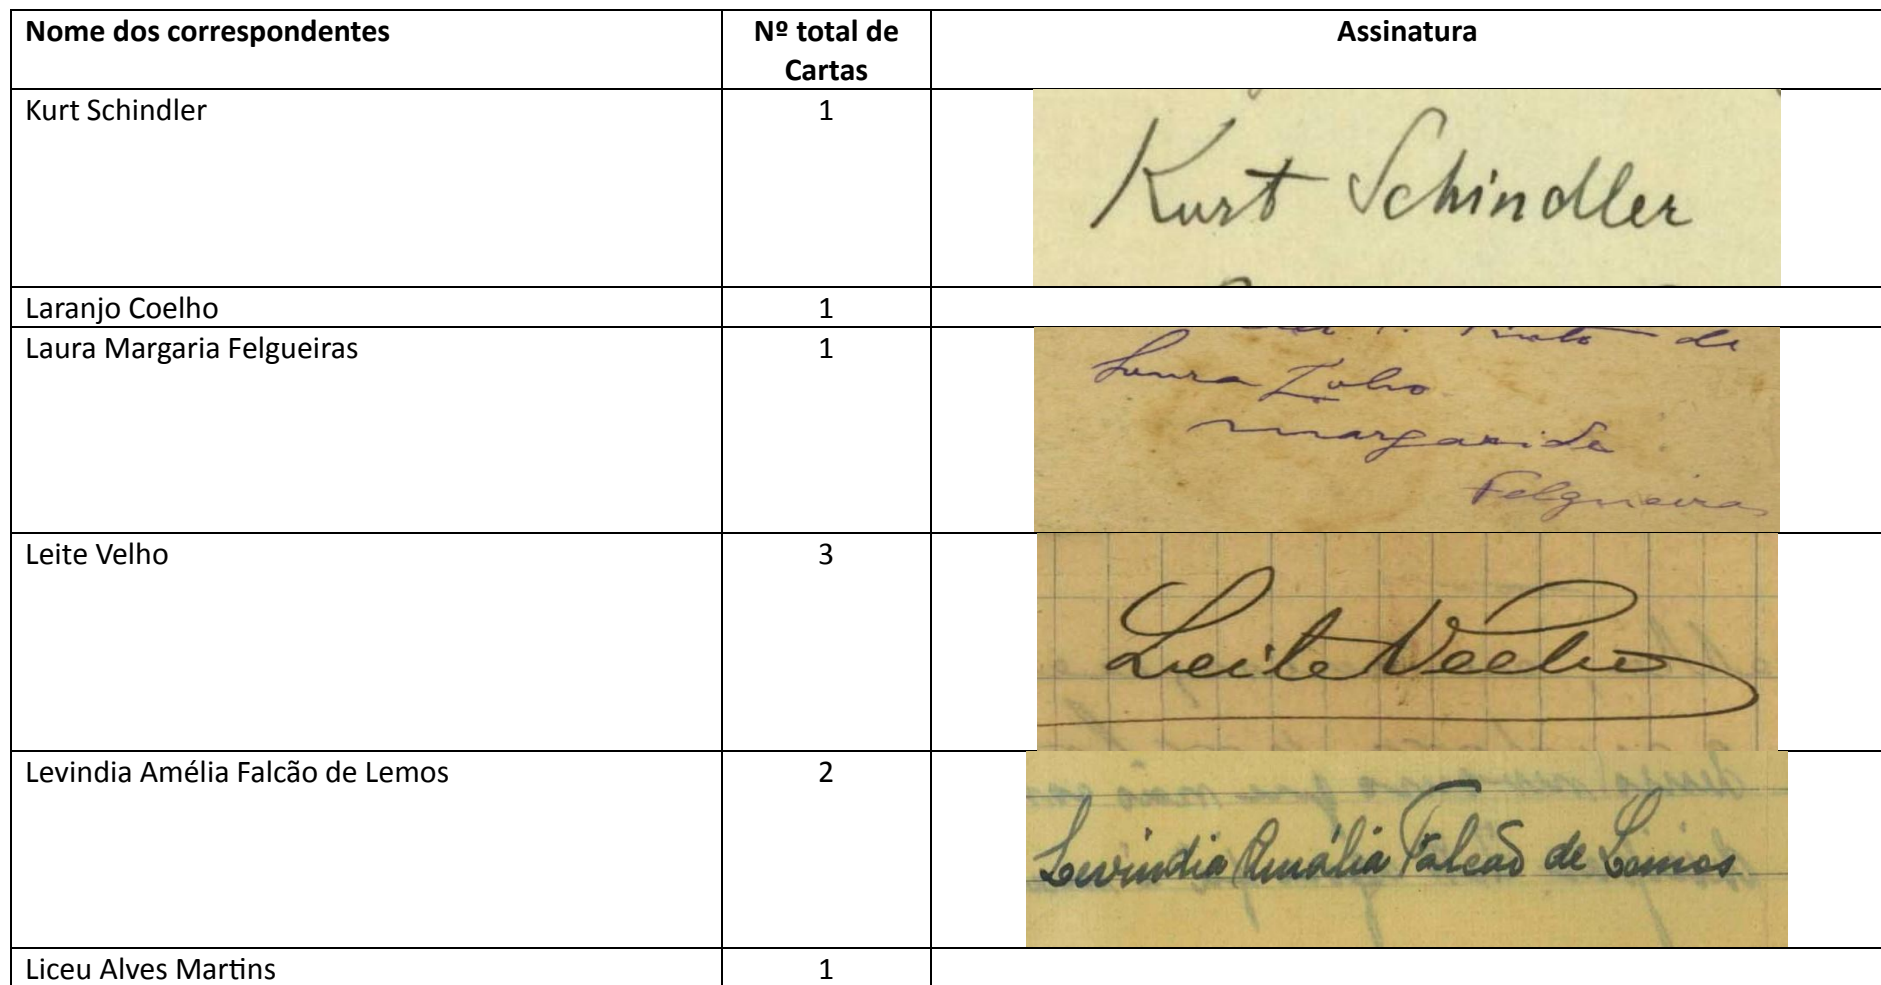 Nome dos correspondentes
Nº total de
Cartas
Assinatura
Kurt Schindler
1
Kurt Schindler
Laranjo Coelho
1
Laura Margaria Felgueiras
1
de
Laura
Margarida
Felgueiras
Leite Velho
3
Leite Velho
Levindia Amélia Falcão de Lemos
2
Levindia Amália Falcão de Lemos
Liceu Alves Martins
1